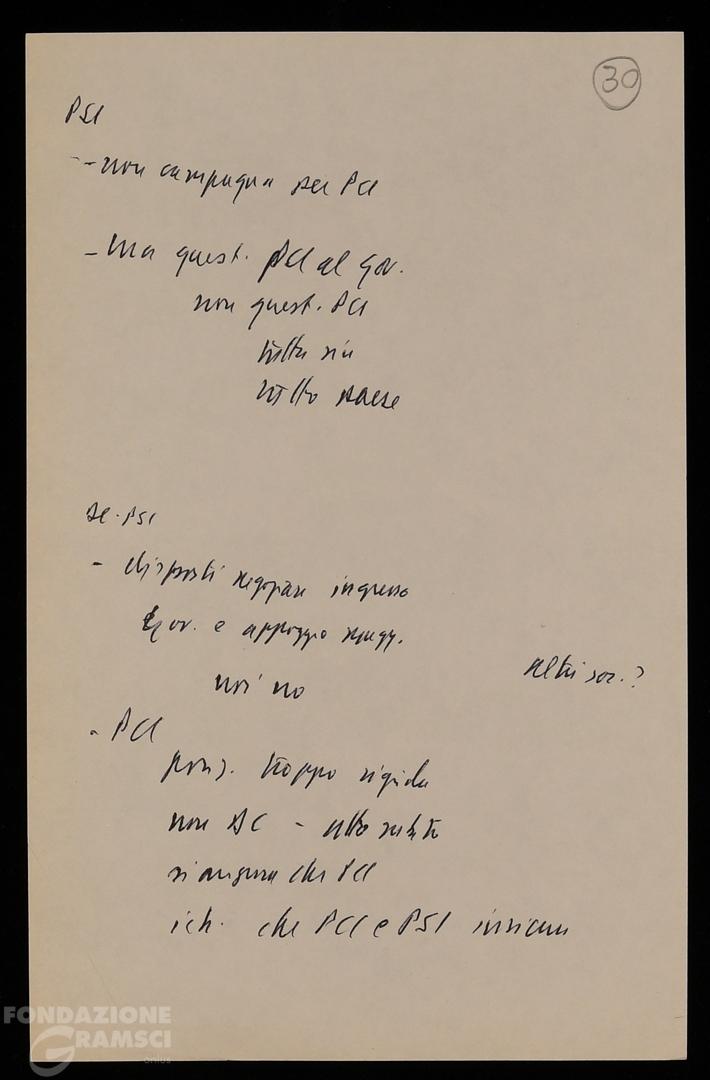 30
PSI
- non campagna per PCI
- Ma quest. PCI al gov.
non quest. PCI
tutta sin
tutto paese
PSI
- disposti negoziare ingresso
gov. e appoggio magg.
noi no
altri soc.?
- PCI
posiz. troppo rigida
non DC -
si augura che PCI
che PCI e PSI insieme
FONDAZIONE
GRAMSCI
onlus